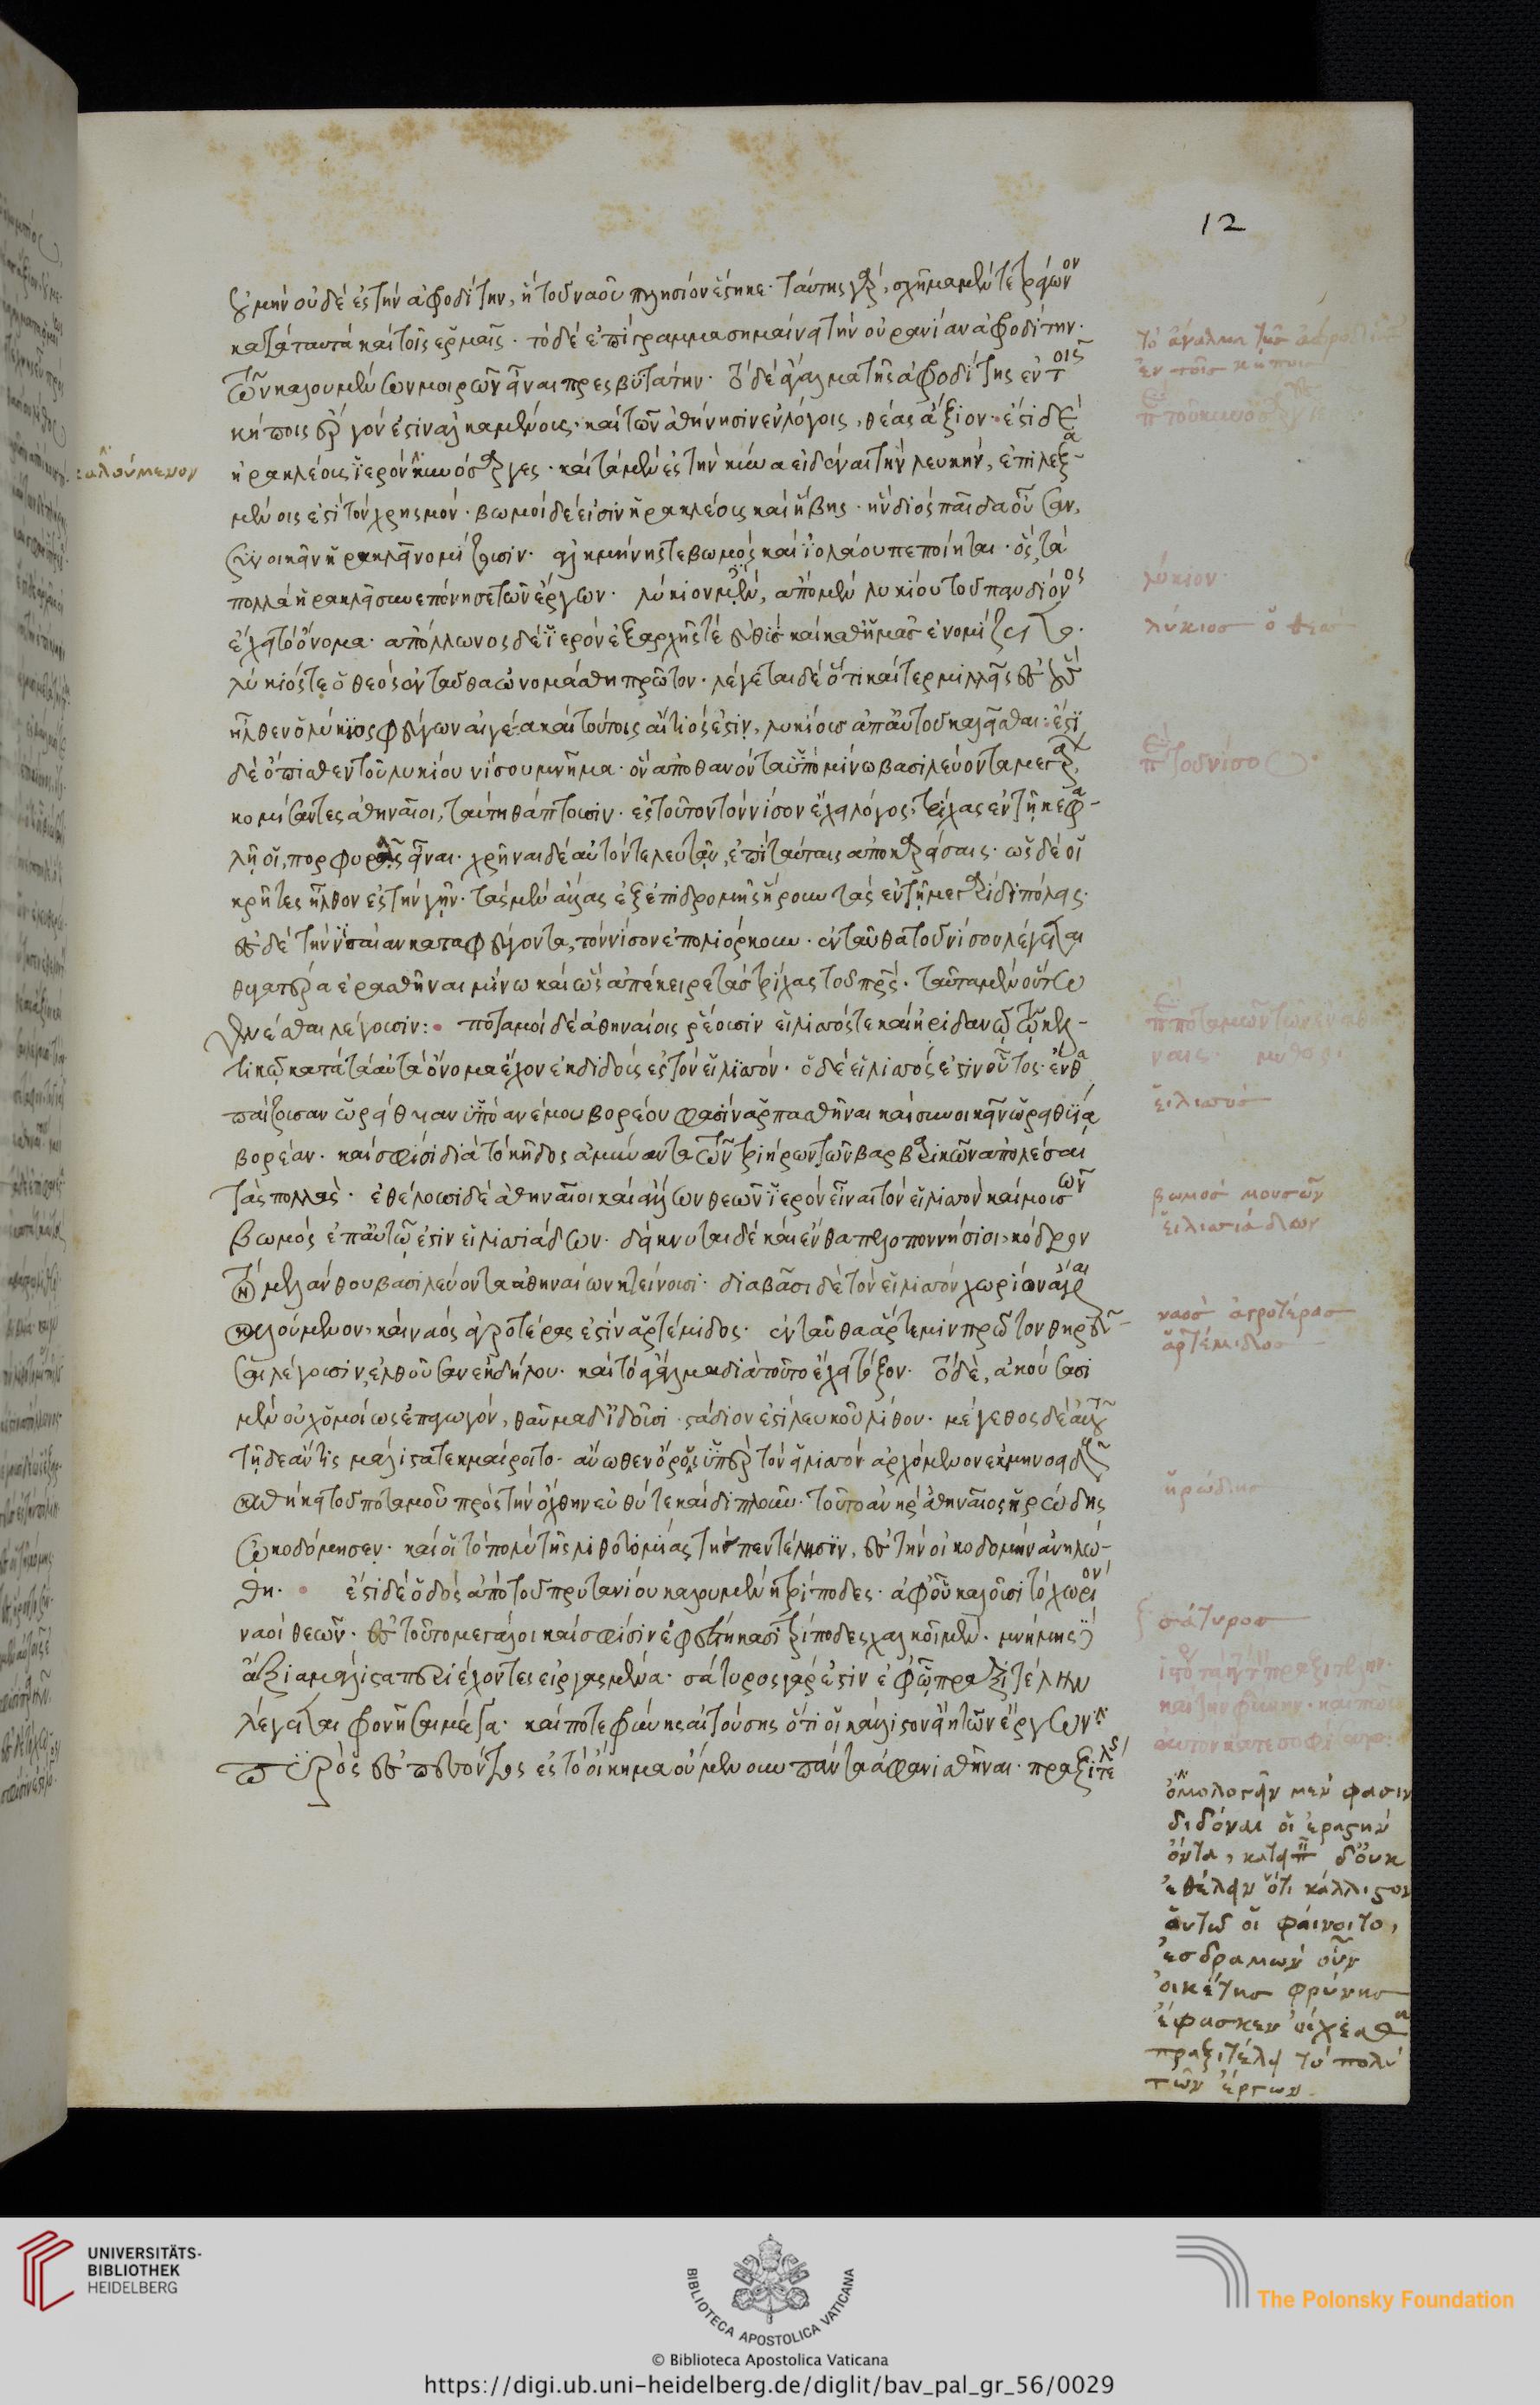 μην οὐδὲ ἐς τὴν ἀφροδίτην, ἣ τοῦ ναοῦ πλησίον ἕστηκε· ταύτης γὰρ, σχῆμα μὲν τετράγωνον
κατὰ ταυτὰ καὶ τοῖς ἑρμαῖς· τὸ δὲ ἐπίγραμμα σημαίνει τὴν οὐρανίαν ἀφροδίτην·
τῶν καλουμένων μοιρῶν εἶναι πρεσβυτάτην· τὸ δὲ ἄγαλμα τῆς ἀφροδίτης ἐν τοῖς
κήποις ἔργον ἐστὶν ἀλκαμένους· καὶ τῶν ἀθήνησιν ἐν λόγοις, θέας ἄξιον· ἔστι δὲ
ἡρακλέους ἱερὸν κυνόσαργες· καὶ τὰ μὲν ἐς τὴν κύνα εἰδέναι τὴν λευκήν, ἐπιλεξα-
μένοις ἐστὶ τὸν χρησμόν· βωμοὶ δέ εἰσιν ἡρακλέους καὶ ἥβης· ἣν διὸς παῖδα οὖσαν,
συνοικεῖν ἡρακλεῖ νομίζουσιν· ἀλκμήνης τε βωμὸς καὶ ἰολάου πεποίηται· ὃς τὰ
πολλὰ ἡρακλεῖ συνεπόνησε τῶν ἔργων· λύκιον μὲν, ἀπὸ μὲν λυκίου τοῦ πανδίονος
ἔχει τὸ ὄνομα· ἀπόλλωνος δὲ ἱερὸν ἐξ ἀρχῆς τε εὐθὺς καὶ καθ' ἡμᾶς ἐνομίζετο·
λύκιός τε ὁ θεὸς ἐνταῦθα ὠνομάσθη πρῶτον· λέγεται δὲ ὅτι καὶ τερμίλλαις ἐς οὓς
ἦλθεν ὁ λύκιος φεύγων αἰγέα καὶ τούτοις αἴτιός ἐστιν, λυκίους ἀπ' αὐτοῦ καλεῖσθαι· ἔστι
δὲ ὄπισθεν τοῦ λυκίου νίσου μνῆμα· ὃν ἀποθανόντα ὑπὸ μίνω βασιλεύοντα μεγάρων
κομίσαντες ἀθηναῖοι, ταύτῃ θάπτουσιν· ἐς τοῦτον τὸν νίσον ἔχει λόγος, τρίχας ἐν τῇ κεφα-
λῇ οἱ, πορφυρᾶς εἶναι· χρῆναι δὲ αὐτὸν τελευτᾶν, ἐπὶ ταύταις ἀποκαρείσαις· ὡς δὲ οἱ
κρῆτες ἦλθον ἐς τὴν γῆν· τὰς μὲν ἄλλας ἐξ ἐπιδρομῆς ᾕρουν τὰς ἐν τῇ μεγαρίδι πόλεις·
ἐς δὲ τὴν νισαίαν καταφεύγοντα, τὸν νίσον ἐπολιόρκουν· ἐνταῦθα τοῦ νίσου λέγεται
θυγατέρα ἐρασθῆναι μίνω καὶ ὡς ἀπέκειρε τὰς τρίχας τοῦ πατρός· ταῦτα μὲν οὕτω
γενέσθαι λέγουσιν: ποταμοὶ δὲ ἀθηναίοις ῥέουσιν εἰλισσός τε καὶ ἠριδανῷ τῷ κελ-
τικῷ κατὰ τὰ αὐτὰ ὄνομα ἔχον ἐκδιδοὺς ἐς τὸν εἰλισσόν· ὁ δὲ εἰλισσός ἐστιν οὗτος· ἔνθα
παίζουσαν ὠρείθυιαν ὑπὸ ἀνέμου βορέου φασὶν ἁρπασθῆναι καὶ συνοικεῖν ὠρειθυίᾳ
βορέαν· καὶ σφίσι διὰ τὸ κῆδος ἀμύναντα τῶν τριήρων τῶν βαρβαρικῶν ἀπολέσαι
τὰς πολλάς· ἐθέλουσι δὲ ἀθηναῖοι καὶ ἄλλων θεῶν ἱερὸν εἶναι τὸν εἰλισσὸν καὶ μουσῶν
βωμὸς ἐπ' αὐτῷ ἐστιν εἰλισσιάδων· δείκνυται δὲ καὶ ἔνθα πελοποννήσιοι, κόδρον
τὸν μελάνθου βασιλεύοντα ἀθηναίων κτείνουσι· διαβᾶσι δὲ τὸν εἰλισσὸν χωρίον ἄγραι
καλούμενον, καὶ ναὸς ἀγροτέρας ἐστὶν ἀρτέμιδος· ἐνταῦθα ἄρτεμιν πρῶτον θηρεῦ-
σαι λέγουσιν, ἐλθοῦσαν ἐκ δήλου· καὶ τὸ ἄγαλμα διὰ τοῦτο ἔχει τόξον· τὸ δὲ, ἀκούσασι
μὲν οὐχ ὁμοίως ἐπαγωγόν, θαῦμα δ' ἰδοῦσι· στάδιόν ἐστι λευκοῦ λίθου· μέγεθος δὲ αὐτοῦ
τῇδε ἄν τις μάλιστα τεκμαίροιτο· ἄνωθεν ὄρος ὑπὲρ τὸν εἰλισσὸν ἀρχόμενον ἐκ μηνοειδοῦς
καθήκει τοῦ ποταμοῦ πρὸς τὴν ὄχθην εὐθύ τε καὶ διπλοῦν· τοῦτο ἀνὴρ ἀθηναῖος ἡρώδης
ᾠκοδόμησεν· καὶ οἱ τὸ πολὺ τῆς λιθοτομίας τῆς πεντέλησιν, ἐς τὴν οἰκοδομὴν ἀνηλώ-
θη· ἔστι δὲ ὁδὸς ἀπὸ τοῦ πρυτανίου καλουμένη τρίποδες· ἀφ' οὗ καλοῦσι τὸ χωρίον
ναοὶ θεῶν· ἐς τοῦτο μεγάλοι καὶ σφίσιν ἐφεστήκασι τρίποδες χαλκοῖ μὲν· μνήμης δὲ
ἄξια μάλιστα περιέχοντες εἰργασμένα· σάτυρος γάρ ἐστιν ἐφ' ᾧ πραξιτέλην
λέγεται φρονῆσαι μέγα· καί ποτε φρύνης αἰτούσης ὅτι οἱ κάλλιστον εἴη τῶν ἔργων
πυρὸς ἐσπεσόντος ἐς τὸ οἴκημα οὐ μὲν οὖν πάντα ἀφανισθῆναι· πραξιτέλης
καλούμενον
12
τὸ ἄγαλμα τῆς ἀφροδίτης
ἐν τοῖς κήποις
λύκιον
λύκιοσ ὁ θεόσ
περὶ τοῦ νίσου
εἰλισσόσ
βωμοσ μουσῶν
εἰλισσιάδων
ναοσ ἀγροτέρασ
ἀρτέμιδοσ
ἡρώδησ
σάτυροσ
ὁμολογεῖν μέν φασιν
διδόναι οἱ ἐραστὴν
ὄντα, κατειπεῖν δ' οὐκ
ἐθέλειν ὅτι κάλλιστον
αὐτῶ οἱ φαίνοιτο,
ἐσδραμὼν οὖν
οἰκέτησ φρύνησ
ἔφασκεν οἴχεσθαι
πραξιτέλει τὸ πολὺ
τῶν ἔργων.
UNIVERSITÄTS-
BIBLIOTHEK
HEIDELBERG
BIBLIOTECA APOSTOLICA VATICANA
The Polonsky Foundation
© Biblioteca Apostolica Vaticana
https://digi.ub.uni-heidelberg.de/diglit/bav_pal_gr_56/0029